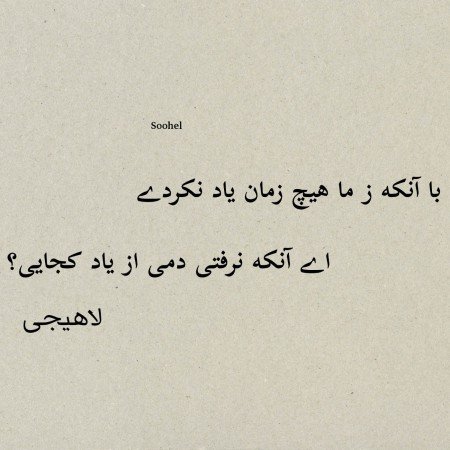 Soohel
با آنکه ز ما هیچ زمان یاد نکردے
اے آنکه نرفتی دمی از یاد کجایی؟
لاهیجی